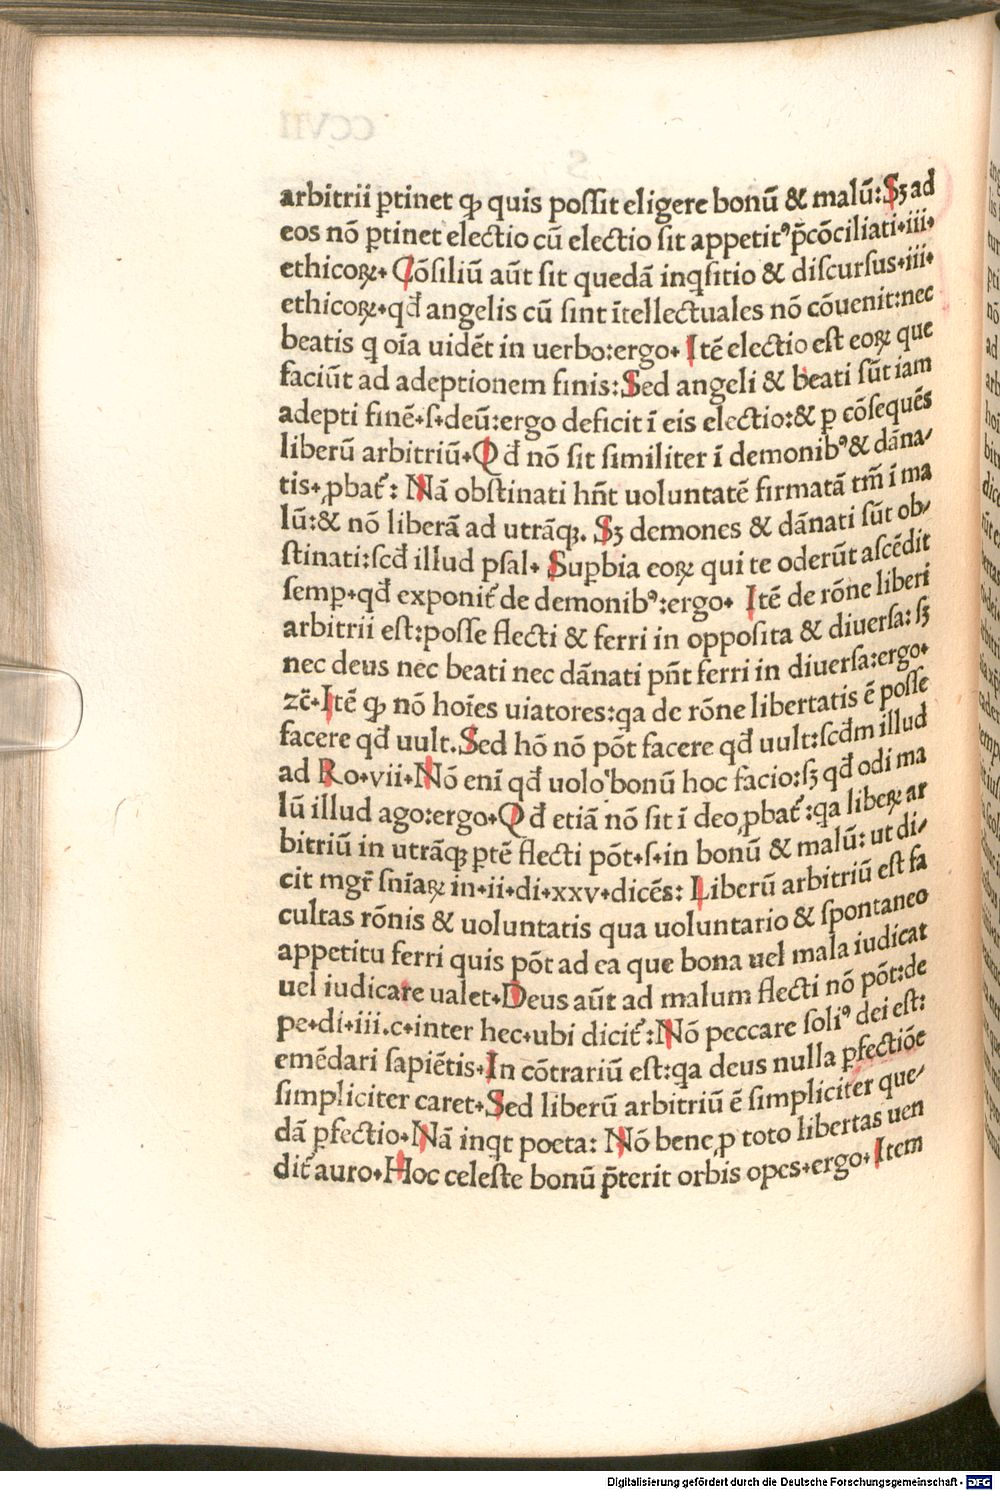 arbitrii ꝑtinet ꝙ quis poſſit eligere bonū & malū:Sꝫ ad
eos nō ꝑtinet electio cū electio ſit appetitꝰ p̄cōciliati.iii.
ethicoꝝ. Cōſiliū aūt ſit quedā inqſitio & diſcurſus.iii.
ethicoꝝ.qđ angelis cū ſint ītellectuales nō cōuenit:nec
beatis q oīa uidēt in uerbo:ergo. Itē electio eſt eoꝝ que
faciūt ad adeptionem finis:Sed angeli & beati ſūt iam
adepti finē.ſ.deū:ergo deficit ī eis electio:& ꝑ cōſequēs
liberū arbitriū.Qđ nō ſit ſimiliter ī demonibꝰ & dāna-
tis.ꝓbat᷑: Nā obſtinati hn̄t uoluntatē firmatā tm̄ ī ma
lū:& nō liberā ad utrāqꝫ. Sꝫ demones & dānati ſūt ob-
ſtinati:ſcđ illud pſal. Suꝑbia eoꝝ qui te oderūt aſcēdit
ſemꝑ.qđ exponit᷑ de demonibꝰ:ergo. Itē de rōne liberi
arbitrii eſt:poſſe flecti & ferri in oppoſita & diuerſa: ſꝫ
nec deus nec beati nec dānati pn̄t ferri in diuerſa:ergo.
ꝛc̄.Itē ꝙ nō hoīes uiatores:qa de rōne libertatis ē poſſe
facere qđ uult.Sed hō nō pōt facere qđ uult:ſcđm illud
ad Ro.vii.Nō enī qđ uolo bonū hoc facio:ſꝫ qđ odi ma
lū illud ago:ergo.Qđ etiā nō ſit ī deo ꝓbat᷑:qa libeꝝ ar
bitriū in utrāqꝫ ꝑtē flecti pōt.ſ.in bonū & malū: ut di-
cit mgr̄ ſnīaꝝ in.ii.di.xxv.dicēs: Liberū arbitriū eſt fa
cultas rōnis & uoluntatis qua uoluntario & ſpontaneo
appetitu ferri quis pōt ad ea que bona uel mala iudicat
uel iudicare ualet.Deus aūt ad malum flecti nō pōt:de
pe.di.iii.c.inter hec.ubi dicit᷑:Nō peccare ſoliꝰ dei eſt:
emēdari ſapiētis.In cōtrariū eſt:qa deus nulla ꝑfectiōe
ſimpliciter caret.Sed liberū arbitriū ē ſimpliciter que-
dā ꝑfectio.Nā inqt poeta: Nō bene ꝓ toto libertas uen
dit᷑ auro.Hoc celeſte bonū p̄terit orbis opes.ergo. Item
Digitalisierung gefördert durch die Deutsche Forschungsgemeinschaft - DFG